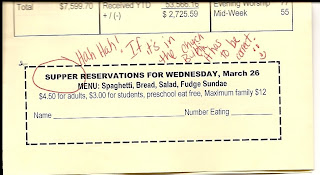 $7,599.70 Received YTD Evening Worship 77
+ / (-) $ 2,725.59 Mid-Week 55
Hah Hah! If it's in
the church
it has to be
correct.
SUPPER RESERVATIONS FOR WEDNESDAY, March 26
MENU: Spaghetti, Bread, Salad, Fudge Sundae
$4.50 for adults, $3.00 for students, preschool eat free, Maximum family $12
Name Number Eating